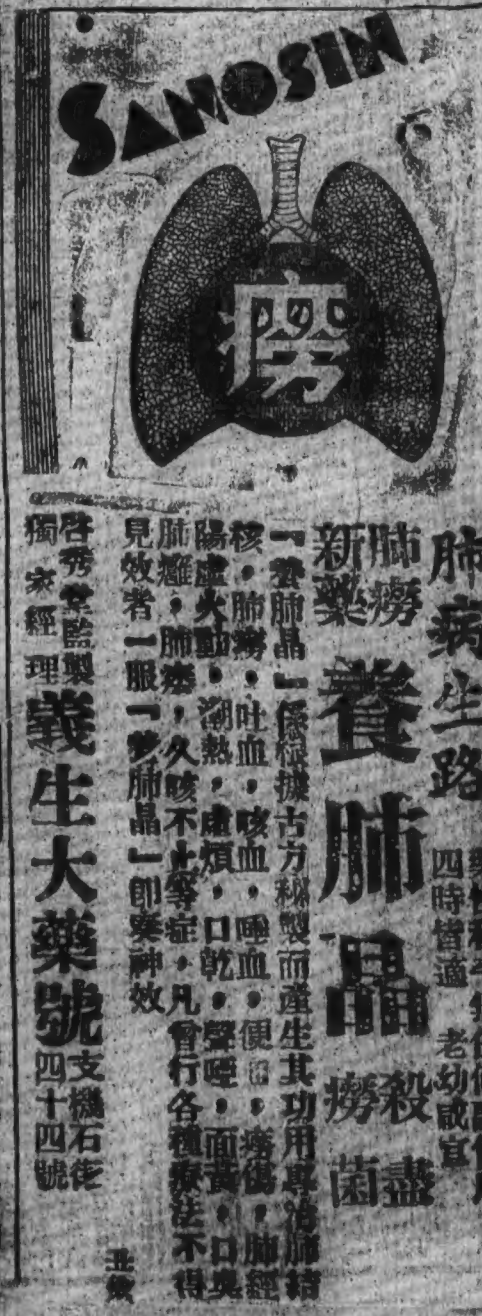 SANOSIN
癆
肺病生路
四時皆適 老幼咸宜
肺癆
新藥
養肺晶
殺盡
癆菌
「養肺晶」係根據古方秘製而產生其功用專治肺結
核，肺癆，吐血，咳血，唾血，便血，癆傷，肺經
陽虛火動，潮熱，虛煩，口乾，聲啞，面黃，口臭
肺癰，肺痿，久咳不止等症，凡曾行各種療法不得
見效者一服「養肺晶」即奏神效
啓秀堂監製
獨家經理
義生大藥號
支機石街
四十四號